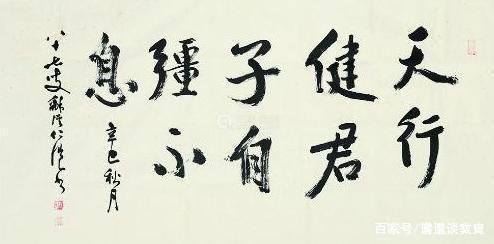 天行
健君
子自
彊不
息
辛巳秋月
八十七叟
百家号/